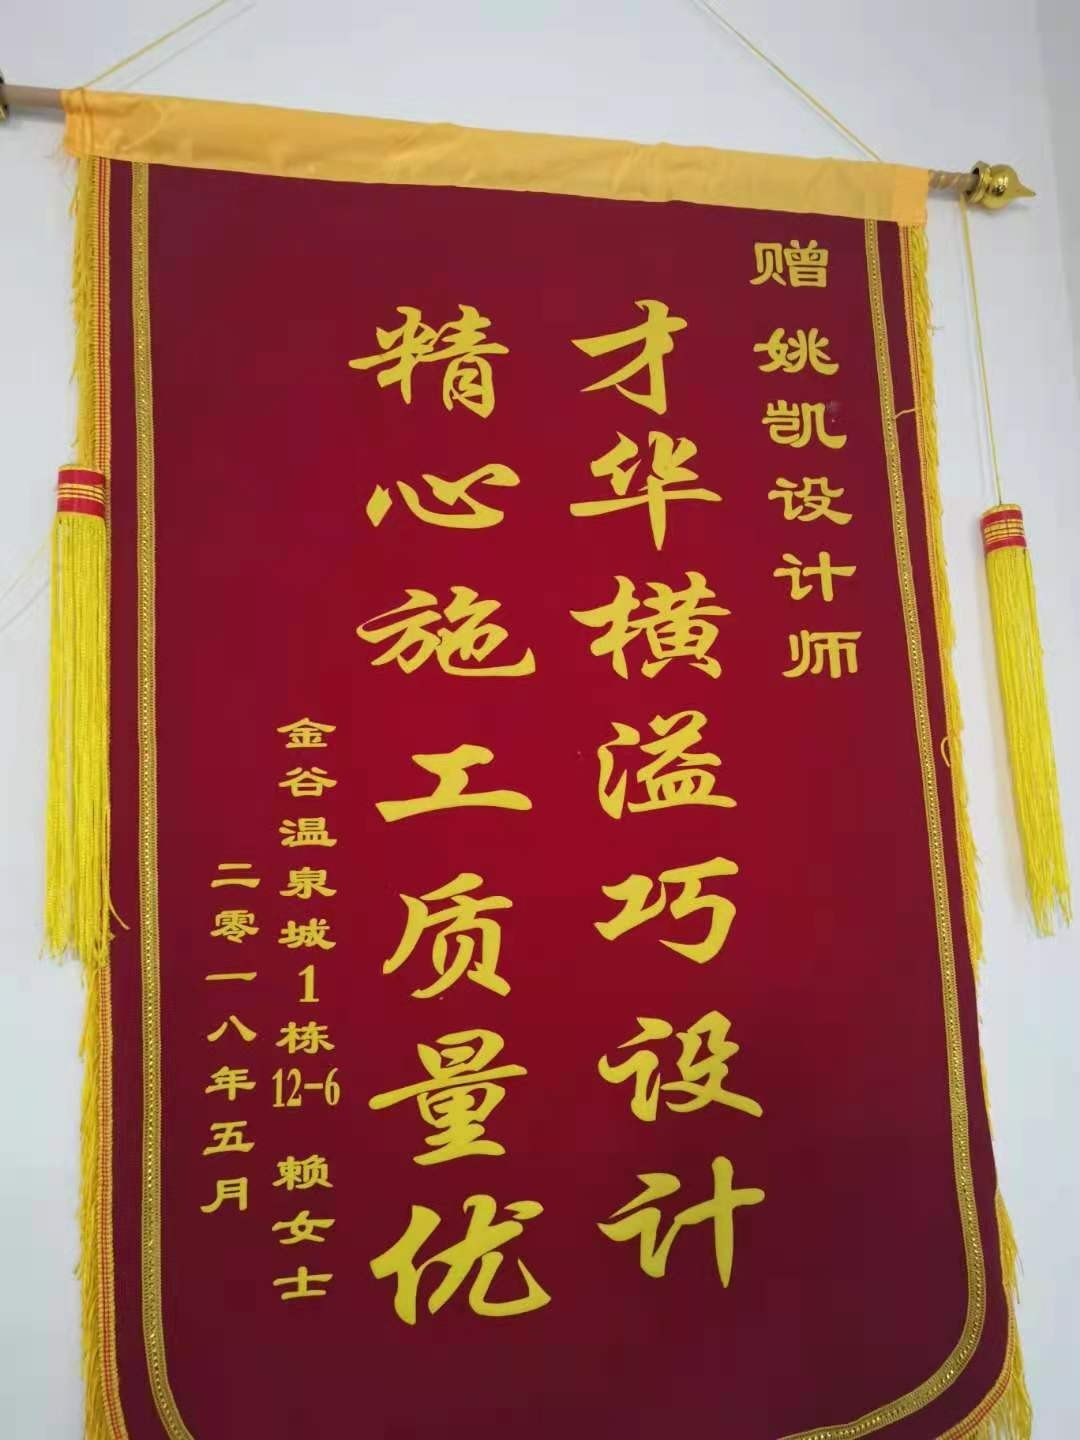 赠 姚凯设计师
才华横溢巧设计
精心施工质量优
金谷温泉城1栋12-6 赖女士
二零一八年五月